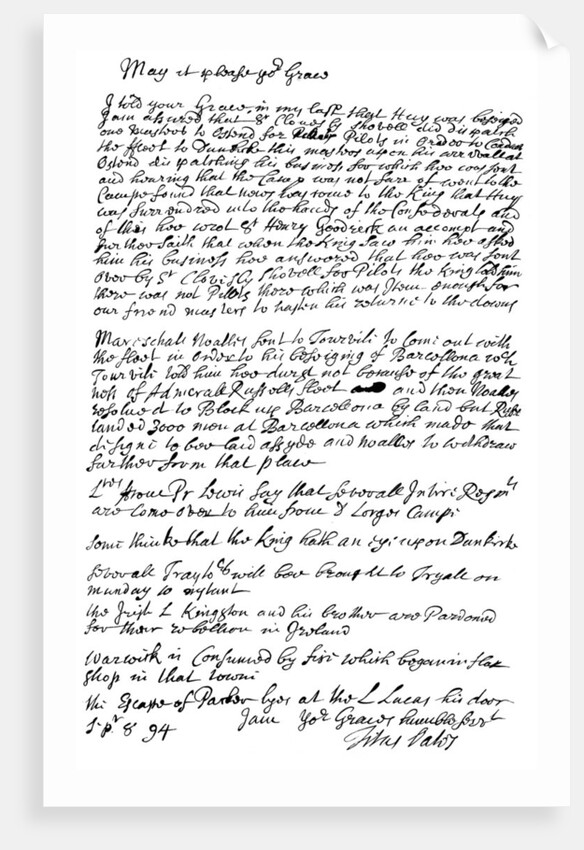 May it please yor Grace
I told your Grace, in my last that Huy was besieged
I am assured that Sr Clouesly Shovell did dispatch
one masters to Ostend for Pilots in Order to Carden
the ffleet to Dunkirke this masters upon his arrivall at
Ostend dispatching his business for which hee was sent
and hearing that the Camp was not farr of went to the
Campe found that news was come to the King that Huy
was surrendred into the hands of the Confederats and
of this hee wrot Sr Henry Goodrick an accompt and
further saith that when the King saw him hee asked
him his business hee answered that hee was sent
over by Sr Clovisly Shovell for Pilots the King told him
there was not Pilots there which was them enough for
our friend masters to hasten his returne to the downs
Mareschall Noalles sent to Tourvill to Come out with
the fleet in order to his besieging of Barcellona wch
Tourvill told him hee durst not because of the great
ness of Admerale Russells fleet and then Noalles
resolved to Block up Barcelona by land but Russell
landed 3000 men at Barcellona which made that
designe to bee laid assyde and noalles to withdraw
further from that place
Ltres from Pr Lewis say that severall Intire Regmts
are come over to him from D Lorges Camp
some thinke that the King hath an eye upon Dunkirke
severall Traytors will bee brought to Tryall on
munday so nstant
the Irish L Kingston and his brother are Pardoned
for their rebellion in Ireland
Warwick is Consumed by fire which began in flax
shop in that towne
the Escape of Parker lyes at the L Lucas his door
Sepr 8 94 I am Yor Graces humble servt
Titus Oates